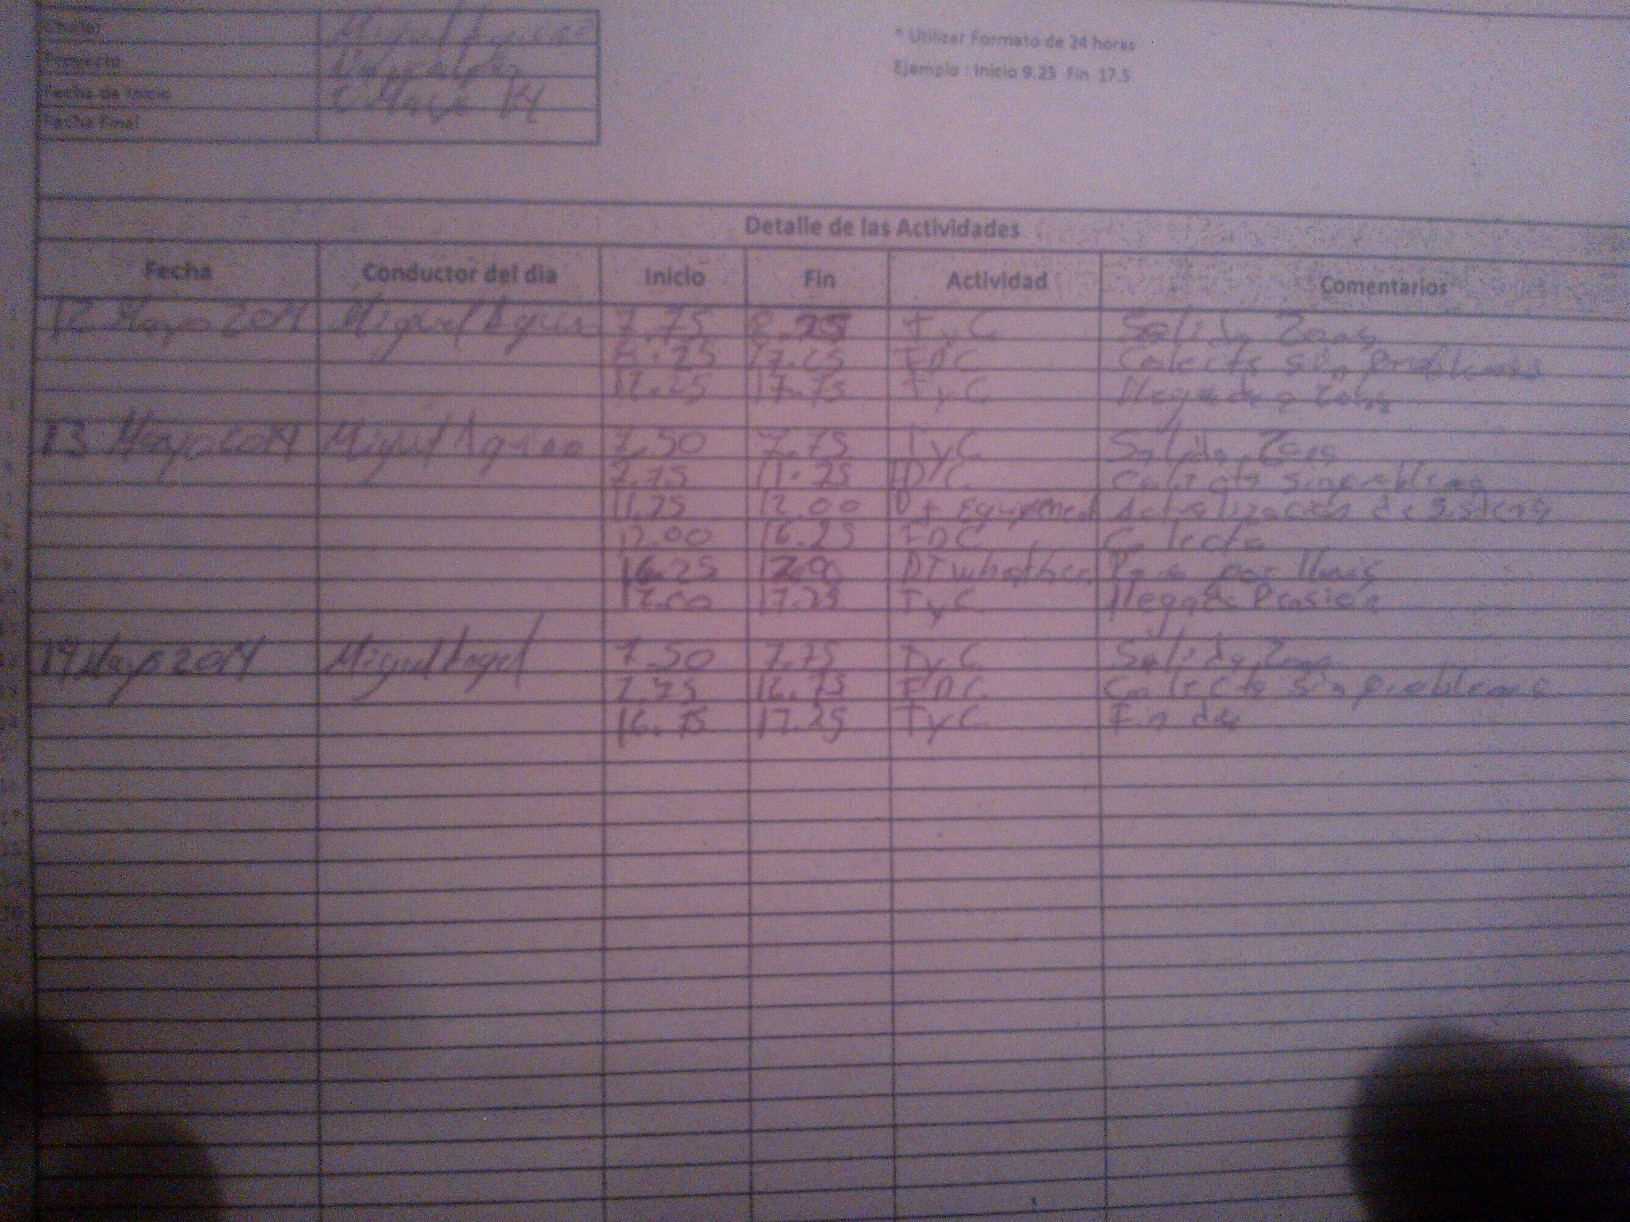 Chofer Miguel
Proyecto
Fecha de Inicio Mayo 14
Fecha Final
* Utilizar Formato de 24 horas
Ejemplo : Inicio 9.25 Fin 17.5
Detalle de las Actividades
Fecha Conductor del dia Inicio Fin Actividad Comentarios
12 Mayo 2014 Miguel 7.75 8.25 TyC Salida Zona
8.25 17.25 FDC Colecta sin problemas
17.25 17.75 TyC llegada a Zona
13 Mayo 2014 Miguel Aquino 7.50 7.75 TyC Salida Zona
7.75 11.75 FDC Colecta sin problemas
11.75 12.00 Equipment Actualizacion de sistema
12.00 16.25 FDC Colecta
16.25 DT whather por lluvia
17.00 17.25 TyC llegada
14 Mayo 2014 Miguel Angel 7.50 7.75 TyC Salida Zona
7.75 16.75 FDC Colecta sin problemas
16.75 17.25 TyC Fin dia